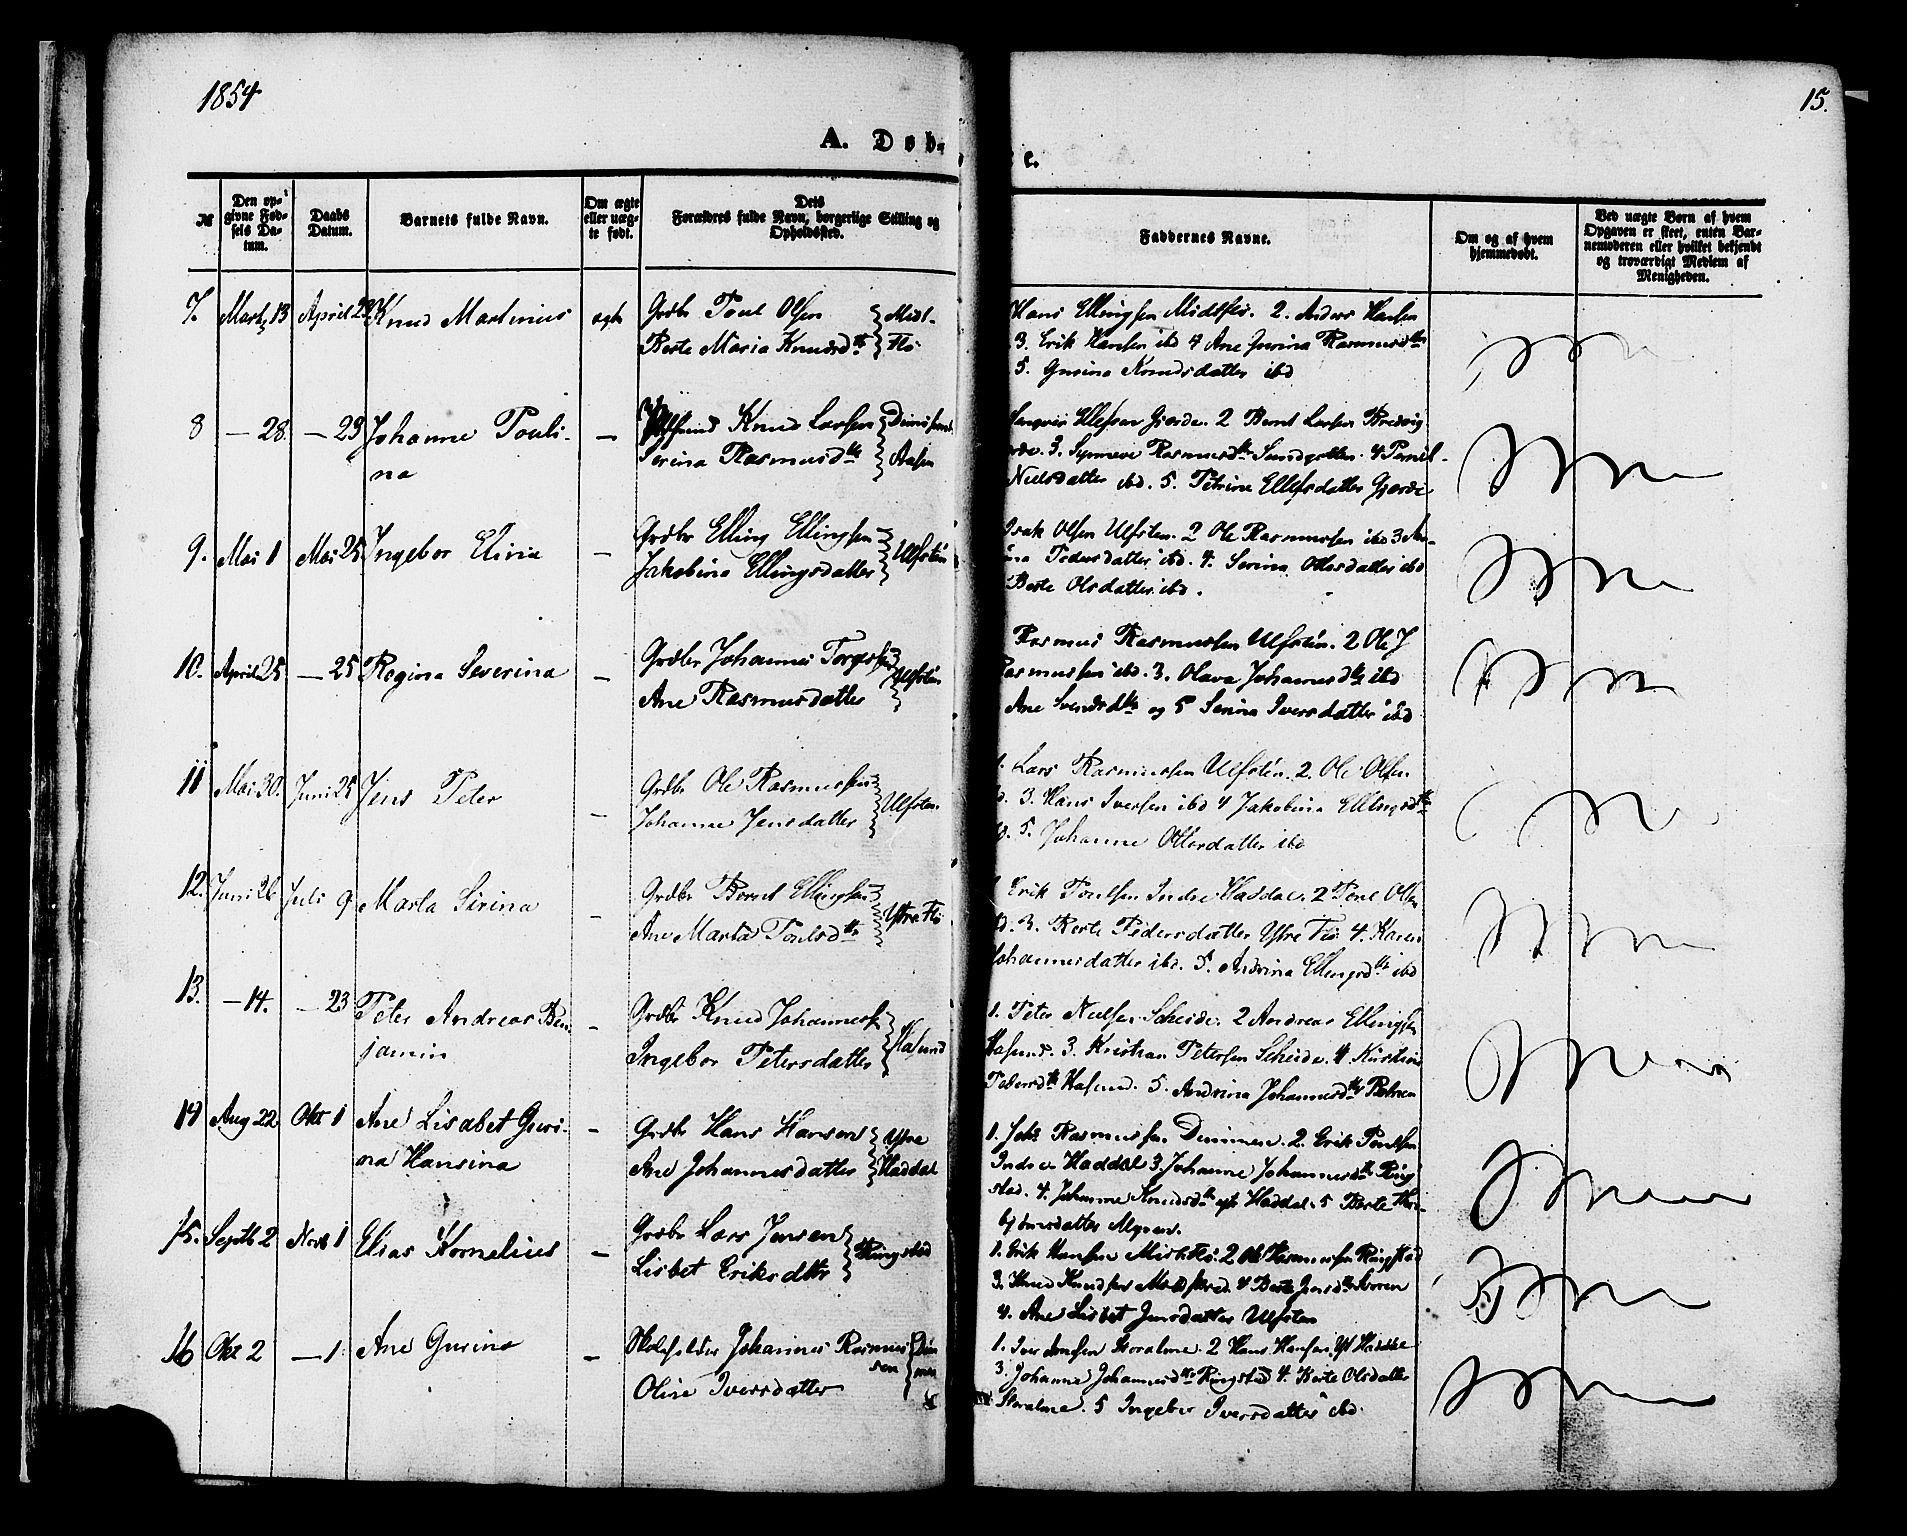 1854
15.
A. Døb-
e.
№
Den op-
givne Fød-
sels Da-
tum.
Daabs
Datum.
Barnets fulde Navn.
Om ægte
eller uæg-
te født.
Dets
Forældres fulde Navn, borgerlige Stilling og
Opholdssted.
Faddernes Navne.
Om og af hvem
hjemmedøbt.
Ved uægte Børn af hvem
Opgaven er skeet, enten Bar-
nemoderen eller hvilket bekjendt
og troværdigt Medlem af
Menigheden.
7. Marts 13 April 23 Knud Martinus ægte Grdbr Poul Olsen Midt-
Berte Maria Knudsdtr Flø
Hans Ellingsen Midtflø. 2. Anders Hansen
3. Erik Hansen ibd 4 Ane Gurina Rasmusdtr
5. Gurina Knudsdatter ibd
8 — 28. — 23 Johanne Pouli- — Knud Larsen
na Serina Rasmusdtr Aasen
Ellefsen Gjerde. 2 Bernt Larsen
3. Synneve Rasmusdtr 4 Pernil-
Nielsdatter ibd. 5. Petrine Ellefsdatter Gjerde
9. Mai 1 Mai 25 Ingebor Elina — Grdbr Elling Ellingsen Ulfsten
Jakobina Ellingsdatter
Isak Olsen Ulfsten. 2 Ole Rasmussen ibd 3 An-
Pedersdatter ibd. 4. Serina Ottersdatter ibd
Berte Olsdatter ibd.
10. April 25 — 25 Regina Severina — Grdbr Johannes Ulfsten
Ane Rasmusdatter
Rasmus Rasmussen Ulfsten. 2 Ole J
Rasmussen ibd. 3. Olava Johannesdtr ibd
Ane Svendsdtr og 5 Serina Iversdatter ibd
11 Mai 30. Juni 25 Jens Peter — Grdbr Ole Rasmussen Ulfsten
Johanne Jensdatter
1. Lars Rasmussen Ulfsten. 2. Ole Olsen
3. Hans Iversen ibd 4 Jakobina Ellingsdtr
5. Johanne Ottersdatter ibd
12. Juni 26 Juli 9 Marta Sirina — Grdbr Bernt Ellingsen Ytre Flø
Ane Marta Poulsdtr
Erik Poulsen Indre Haddal. 2 Poul Olsen
3. Berte Pedersdatter Ytre Flø 4. Karen
Johannesdatter ibd. 5. Andrina Ellingsdtr ibd
13. — 14. — 23 Peter Andreas Ben- — Grdbr Knud Johannessen Hasund
jamin Ingebor Petersdatter
1. Peter Nielsen Scheide. 2 Andreas Ellingsen
Hasund. 3. Kristian Petersen Scheide. 4. Kirstine
Pedersdtr Hasund. 5. Andrina Johannesdtr
14 Aug 22 Okt 1 Ane Lisabet Guri- — Grdbr Hans Hansen Ytre
na Hansina Ane Johannesdatter Haddal
1. Johs Rasmussen Dimmen. 2. Erik Poulsen
Indre Haddal 3. Johanne Johannesdtr Ring
stad. 4. Johanne Knudsdtr Haddal. 5 Berte
Myren.
15. Septb 2 Novb 1 Elias Kornelius — Grdbr Lars Jensen Ringstad
Lisbet Eriksdttr
1. Erik Hansen Midtflø. 2 Ole Rasmussen Ringstad
3. Knud Knudsen 4 Berte Jensdtr
4. Ane Lisbet Jensdatter Ulfsten
16 Okt 2 — 1 Ane Gurina — Skoleholder Johannes Rasmus Dim
sen men
Olise Iversdatter
1. Iver Storalme. 2 Hans Hansen Yt Haddal
3. Johanne Johannesdtr Ringstad 4. Berte Olsdatter
Storalme. 5 Ingebor Iversdatter ibd.